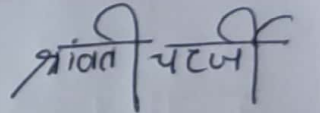 श्रांवती चटर्जी